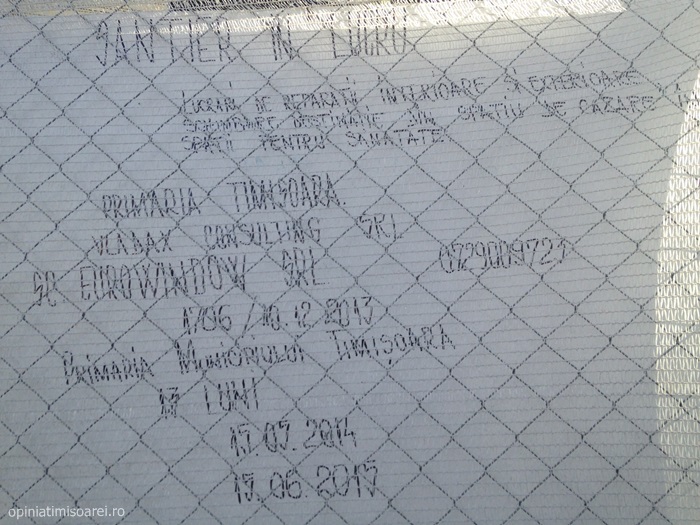 ȘANTIER ÎN LUCRU
LUCRARI DE REPARAȚII INTERIOARE SI EXTERIOARE
SCHIMBARE DESTINATIE DIN SPATIU DE CAZARE IN
SPATII PENTRU SANATATE
PRIMARIA TIMISOARA
VLADAX CONSULTING SRL
SC EUROWINDOW SRL 0729009721
1796/10.12.2013
PRIMARIA MUNICIPIULUI TIMIȘOARA
LUNI
15.07.2014
15.06.2015
opiniatimisoarei.ro